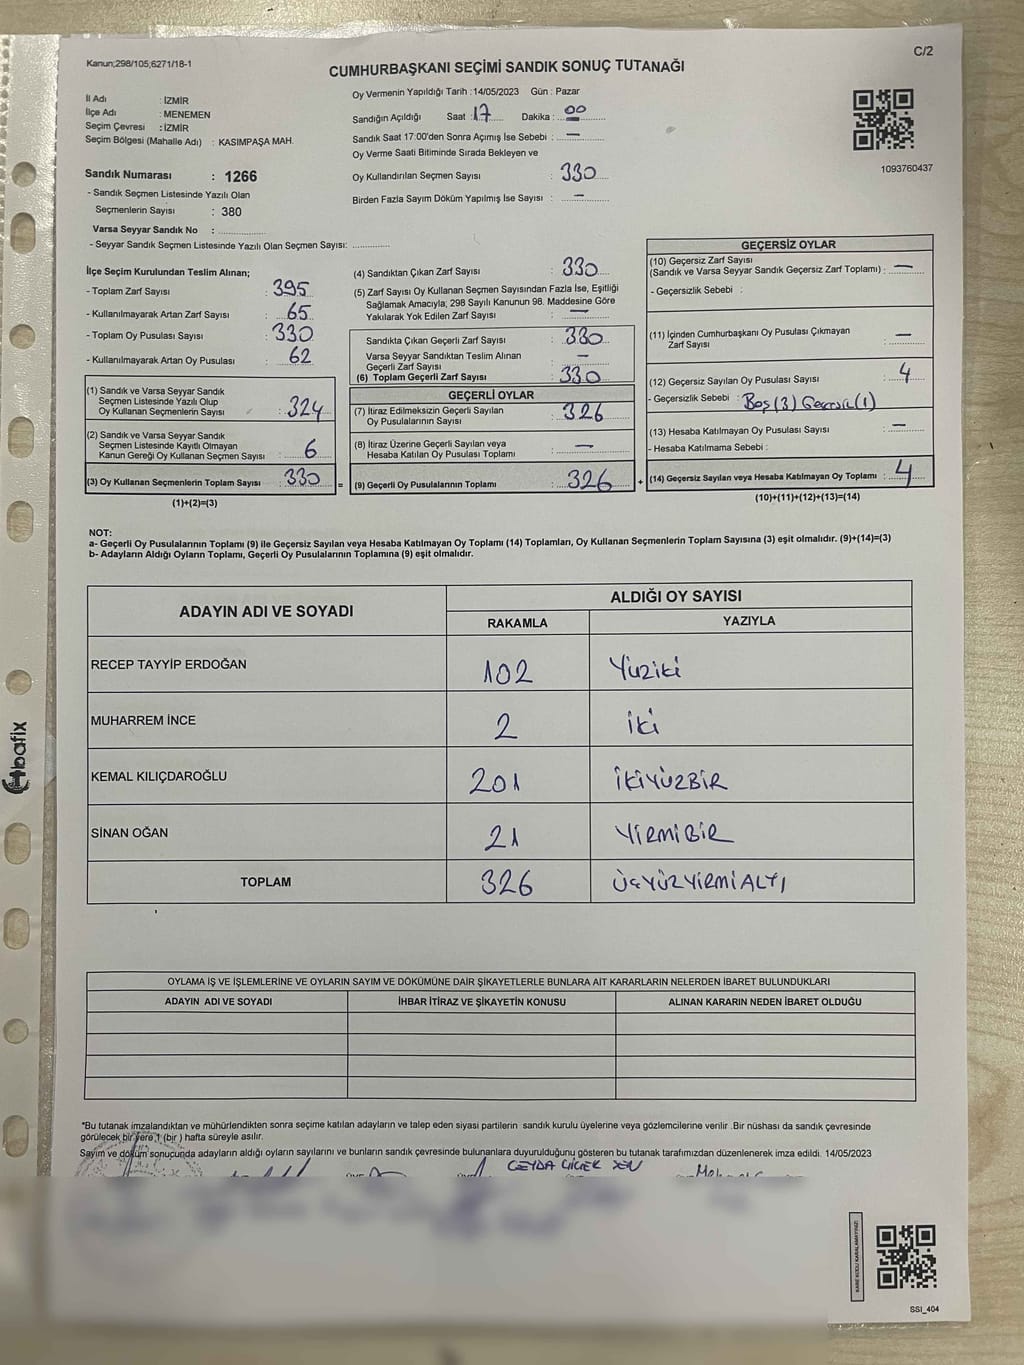 C/2
Kanun;298/105;6271/18-1
CUMHURBAŞKANI SEÇİMİ SANDIK SONUÇ TUTANAĞI
İl Adı : İZMİR
İlçe Adı : MENEMEN
Seçim Çevresi : İZMİR
Seçim Bölgesi (Mahalle Adı) : KASIMPAŞA MAH.
Sandık Numarası : 1266
- Sandık Seçmen Listesinde Yazılı Olan
Seçmenlerin Sayısı : 380
Varsa Seyyar Sandık No : ..............
- Seyyar Sandık Seçmen Listesinde Yazılı Olan Seçmen Sayısı: ............
Oy Vermenin Yapıldığı Tarih :14/05/2023 Gün : Pazar
Sandığın Açıldığı Saat : 17 Dakika : 00
Sandık Saat 17:00'den Sonra Açımış İse Sebebi : —
Oy Verme Saati Bitiminde Sırada Bekleyen ve
Oy Kullandırılan Seçmen Sayısı : 330
Birden Fazla Sayım Döküm Yapılmış İse Sayısı : —
1093760437
İlçe Seçim Kurulundan Teslim Alınan;
- Toplam Zarf Sayısı : 395
- Kullanılmayarak Artan Zarf Sayısı : 65
- Toplam Oy Pusulası Sayısı : 330
- Kullanılmayarak Artan Oy Pusulası : 62
(1) Sandık ve Varsa Seyyar Sandık
Seçmen Listesinde Yazılı Olup
Oy Kullanan Seçmenlerin Sayısı : 324
(2) Sandık ve Varsa Seyyar Sandık
Seçmen Listesinde Kayıtlı Olmayan
Kanun Gereği Oy Kullanan Seçmen Sayısı : 6
(3) Oy Kullanan Seçmenlerin Toplam Sayısı : 330 =
(1)+(2)=(3)
(4) Sandıktan Çıkan Zarf Sayısı : 330
(5) Zarf Sayısı Oy Kullanan Seçmen Sayısından Fazla İse, Eşitliği
Sağlamak Amacıyla; 298 Sayılı Kanunun 98. Maddesine Göre
Yakılarak Yok Edilen Zarf Sayısı : —
Sandıkta Çıkan Geçerli Zarf Sayısı : 330
Varsa Seyyar Sandıktan Teslim Alınan
Geçerli Zarf Sayısı : —
(6) Toplam Geçerli Zarf Sayısı : 330
GEÇERLİ OYLAR
(7) İtiraz Edilmeksizin Geçerli Sayılan
Oy Pusulalarının Sayısı : 326
(8) İtiraz Üzerine Geçerli Sayılan veya
Hesaba Katılan Oy Pusulası Toplamı : —
(9) Geçerli Oy Pusulalarının Toplamı : 326 +
GEÇERSİZ OYLAR
(10) Geçersiz Zarf Sayısı
(Sandık ve Varsa Seyyar Sandık Geçersiz Zarf Toplamı) : —
- Geçersizlik Sebebi :
(11) İçinden Cumhurbaşkanı Oy Pusulası Çıkmayan
Zarf Sayısı : —
(12) Geçersiz Sayılan Oy Pusulası Sayısı : 4
- Geçersizlik Sebebi : Boş(3) Geçersiz(1)
(13) Hesaba Katılmayan Oy Pusulası Sayısı : —
- Hesaba Katılmama Sebebi :
(14) Geçersiz Sayılan veya Hesaba Katılmayan Oy Toplamı : 4
(10)+(11)+(12)+(13)=(14)
NOT:
a- Geçerli Oy Pusulalarının Toplamı (9) ile Geçersiz Sayılan veya Hesaba Katılmayan Oy Toplamı (14) Toplamları, Oy Kullanan Seçmenlerin Toplam Sayısına (3) eşit olmalıdır. (9)+(14)=(3)
b- Adayların Aldığı Oyların Toplamı, Geçerli Oy Pusulalarının Toplamına (9) eşit olmalıdır.
ADAYIN ADI VE SOYADI ALDIĞI OY SAYISI
RAKAMLA YAZIYLA
RECEP TAYYİP ERDOĞAN 102 Yüziki
MUHARREM İNCE 2 iki
KEMAL KILIÇDAROĞLU 201 İKİYÜZBİR
SİNAN OĞAN 21 YİRMİBİR
TOPLAM 326 ÜÇYÜZYİRMİALTI
OYLAMA İŞ VE İŞLEMLERİNE VE OYLARIN SAYIM VE DÖKÜMÜNE DAİR ŞİKAYETLERLE BUNLARA AİT KARARLARIN NELERDEN İBARET BULUNDUKLARI
ADAYIN ADI VE SOYADI İHBAR İTİRAZ VE ŞİKAYETİN KONUSU ALINAN KARARIN NEDEN İBARET OLDUĞU
*Bu tutanak imzalandıktan ve mühürlendikten sonra seçime katılan adayların ve talep eden siyasi partilerin sandık kurulu üyelerine veya gözlemcilerine verilir .Bir nüshası da sandık çevresinde
görülecek bir yere 1 (bir ) hafta süreyle asılır.
Sayım ve döküm sonucunda adayların aldığı oyların sayılarını ve bunların sandık çevresinde bulunanlara duyurulduğunu gösteren bu tutanak tarafımızdan düzenlenerek imza edildi. 14/05/2023
KARE KODU KARALAMAYINIZ!
SSI_404
bafix